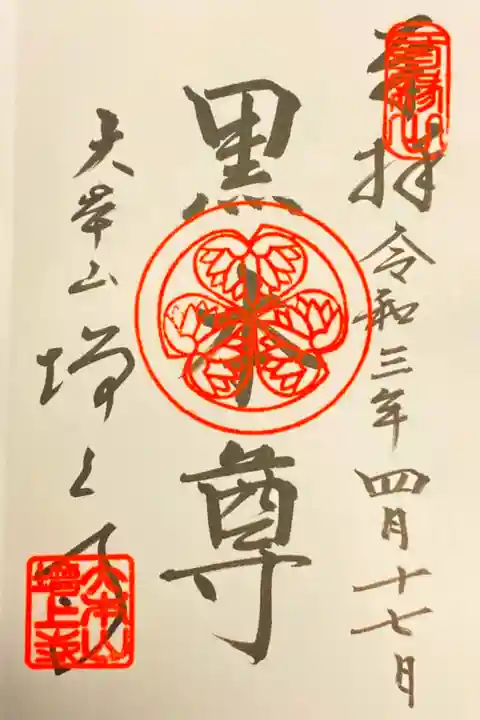 奉拝 令和三年四月十七日
黒本尊
大本山 増上寺
大本山
増上寺